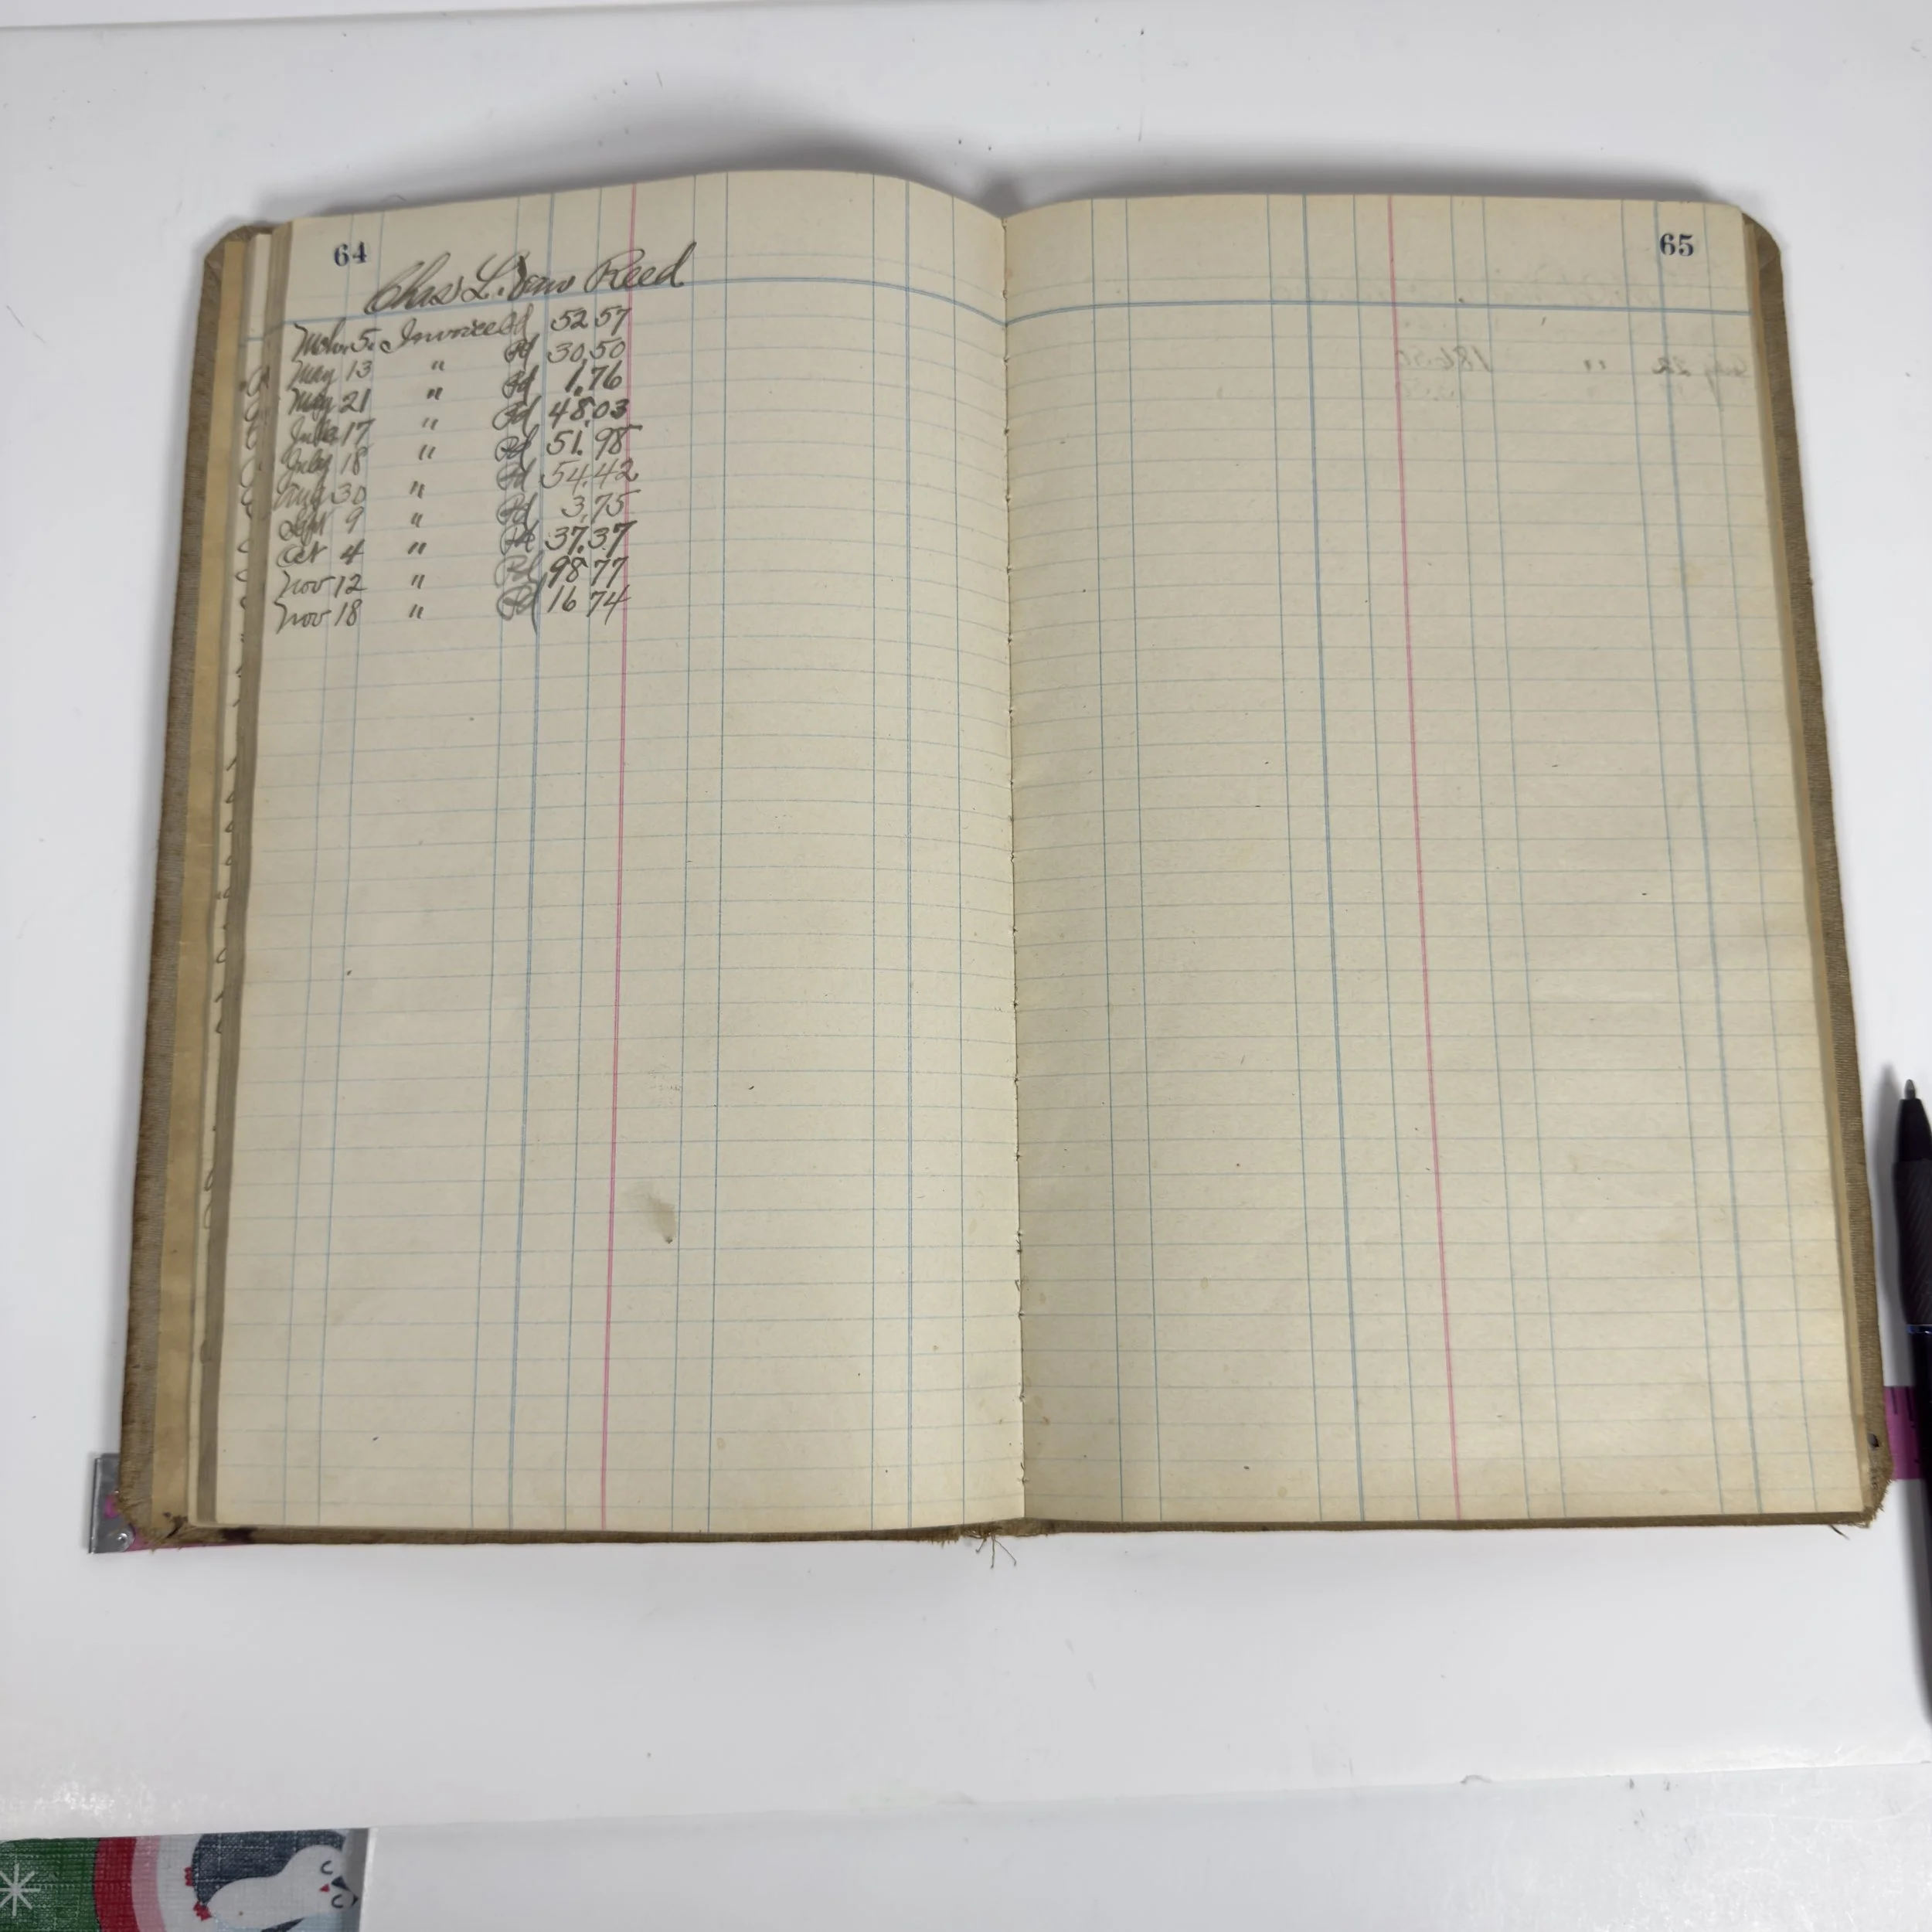 64
Chas L. Van Reed
Mch. 5. Invoice Pd 52.57
May 13 " Pd 30.50
May 21 " Pd 1.76
June 17 " Pd 48.03
July 18 " Pd 51.98
Aug 30 " Pd 54.42
Sept 9 " Pd 3.75
Oct 4 " Pd 37.37
Nov 12 " Pd 98 77
Nov 18 " Pd 16 74
65